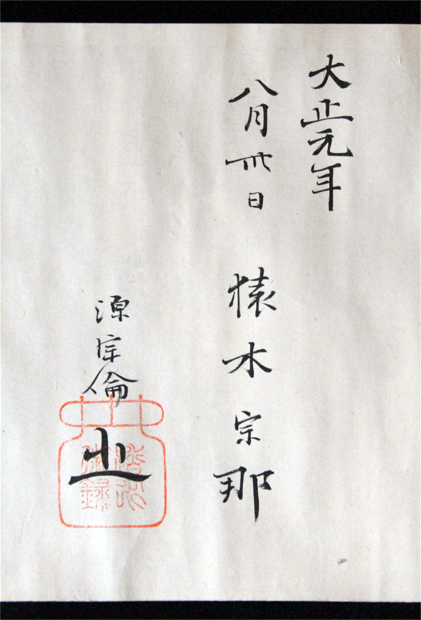 大正元年
八月卅日 猿木宗那
源宗倫